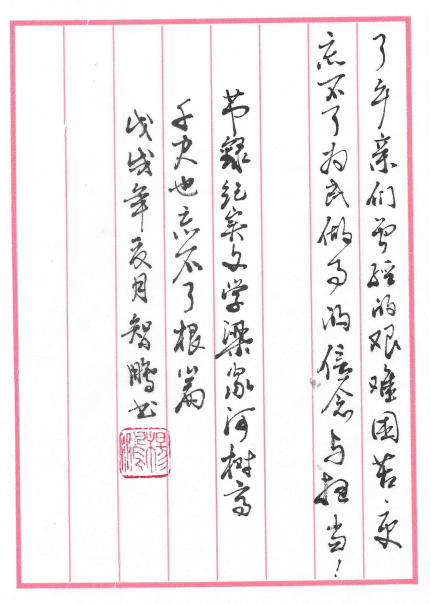 了乡亲们曾经的艰难困苦，更
忘不了为民做事的信念与担当！
节录纪实文学梁家河树高
千丈也忘不了根篇
戊戌年夏月智鹏书